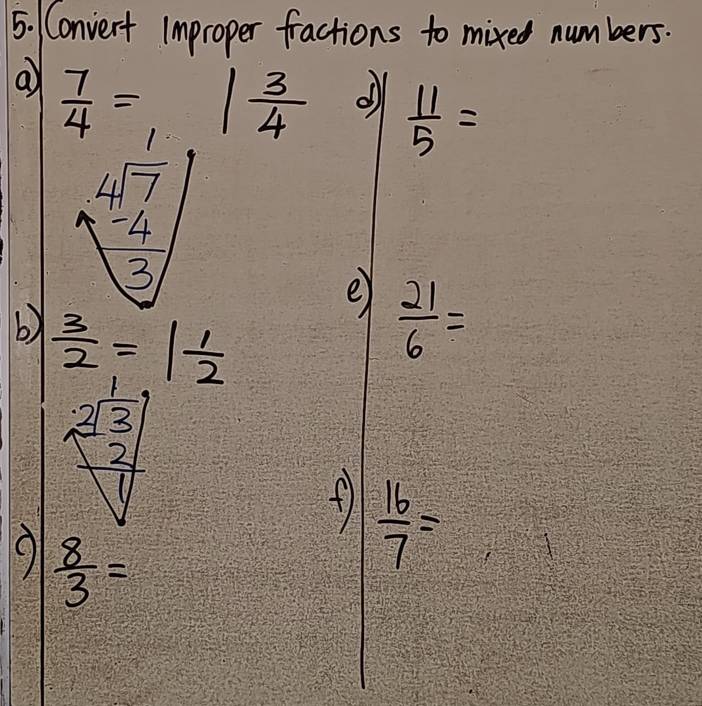 5. Convert Improper fractions to mixed numbers.
a) 7/4 = 1 3/4
1
4√7
-4
3
b) 3/2 = 1 1/2
1
2√3
2
1
c) 8/3 =
d) 11/5 =
e) 21/6 =
f) 16/7 =